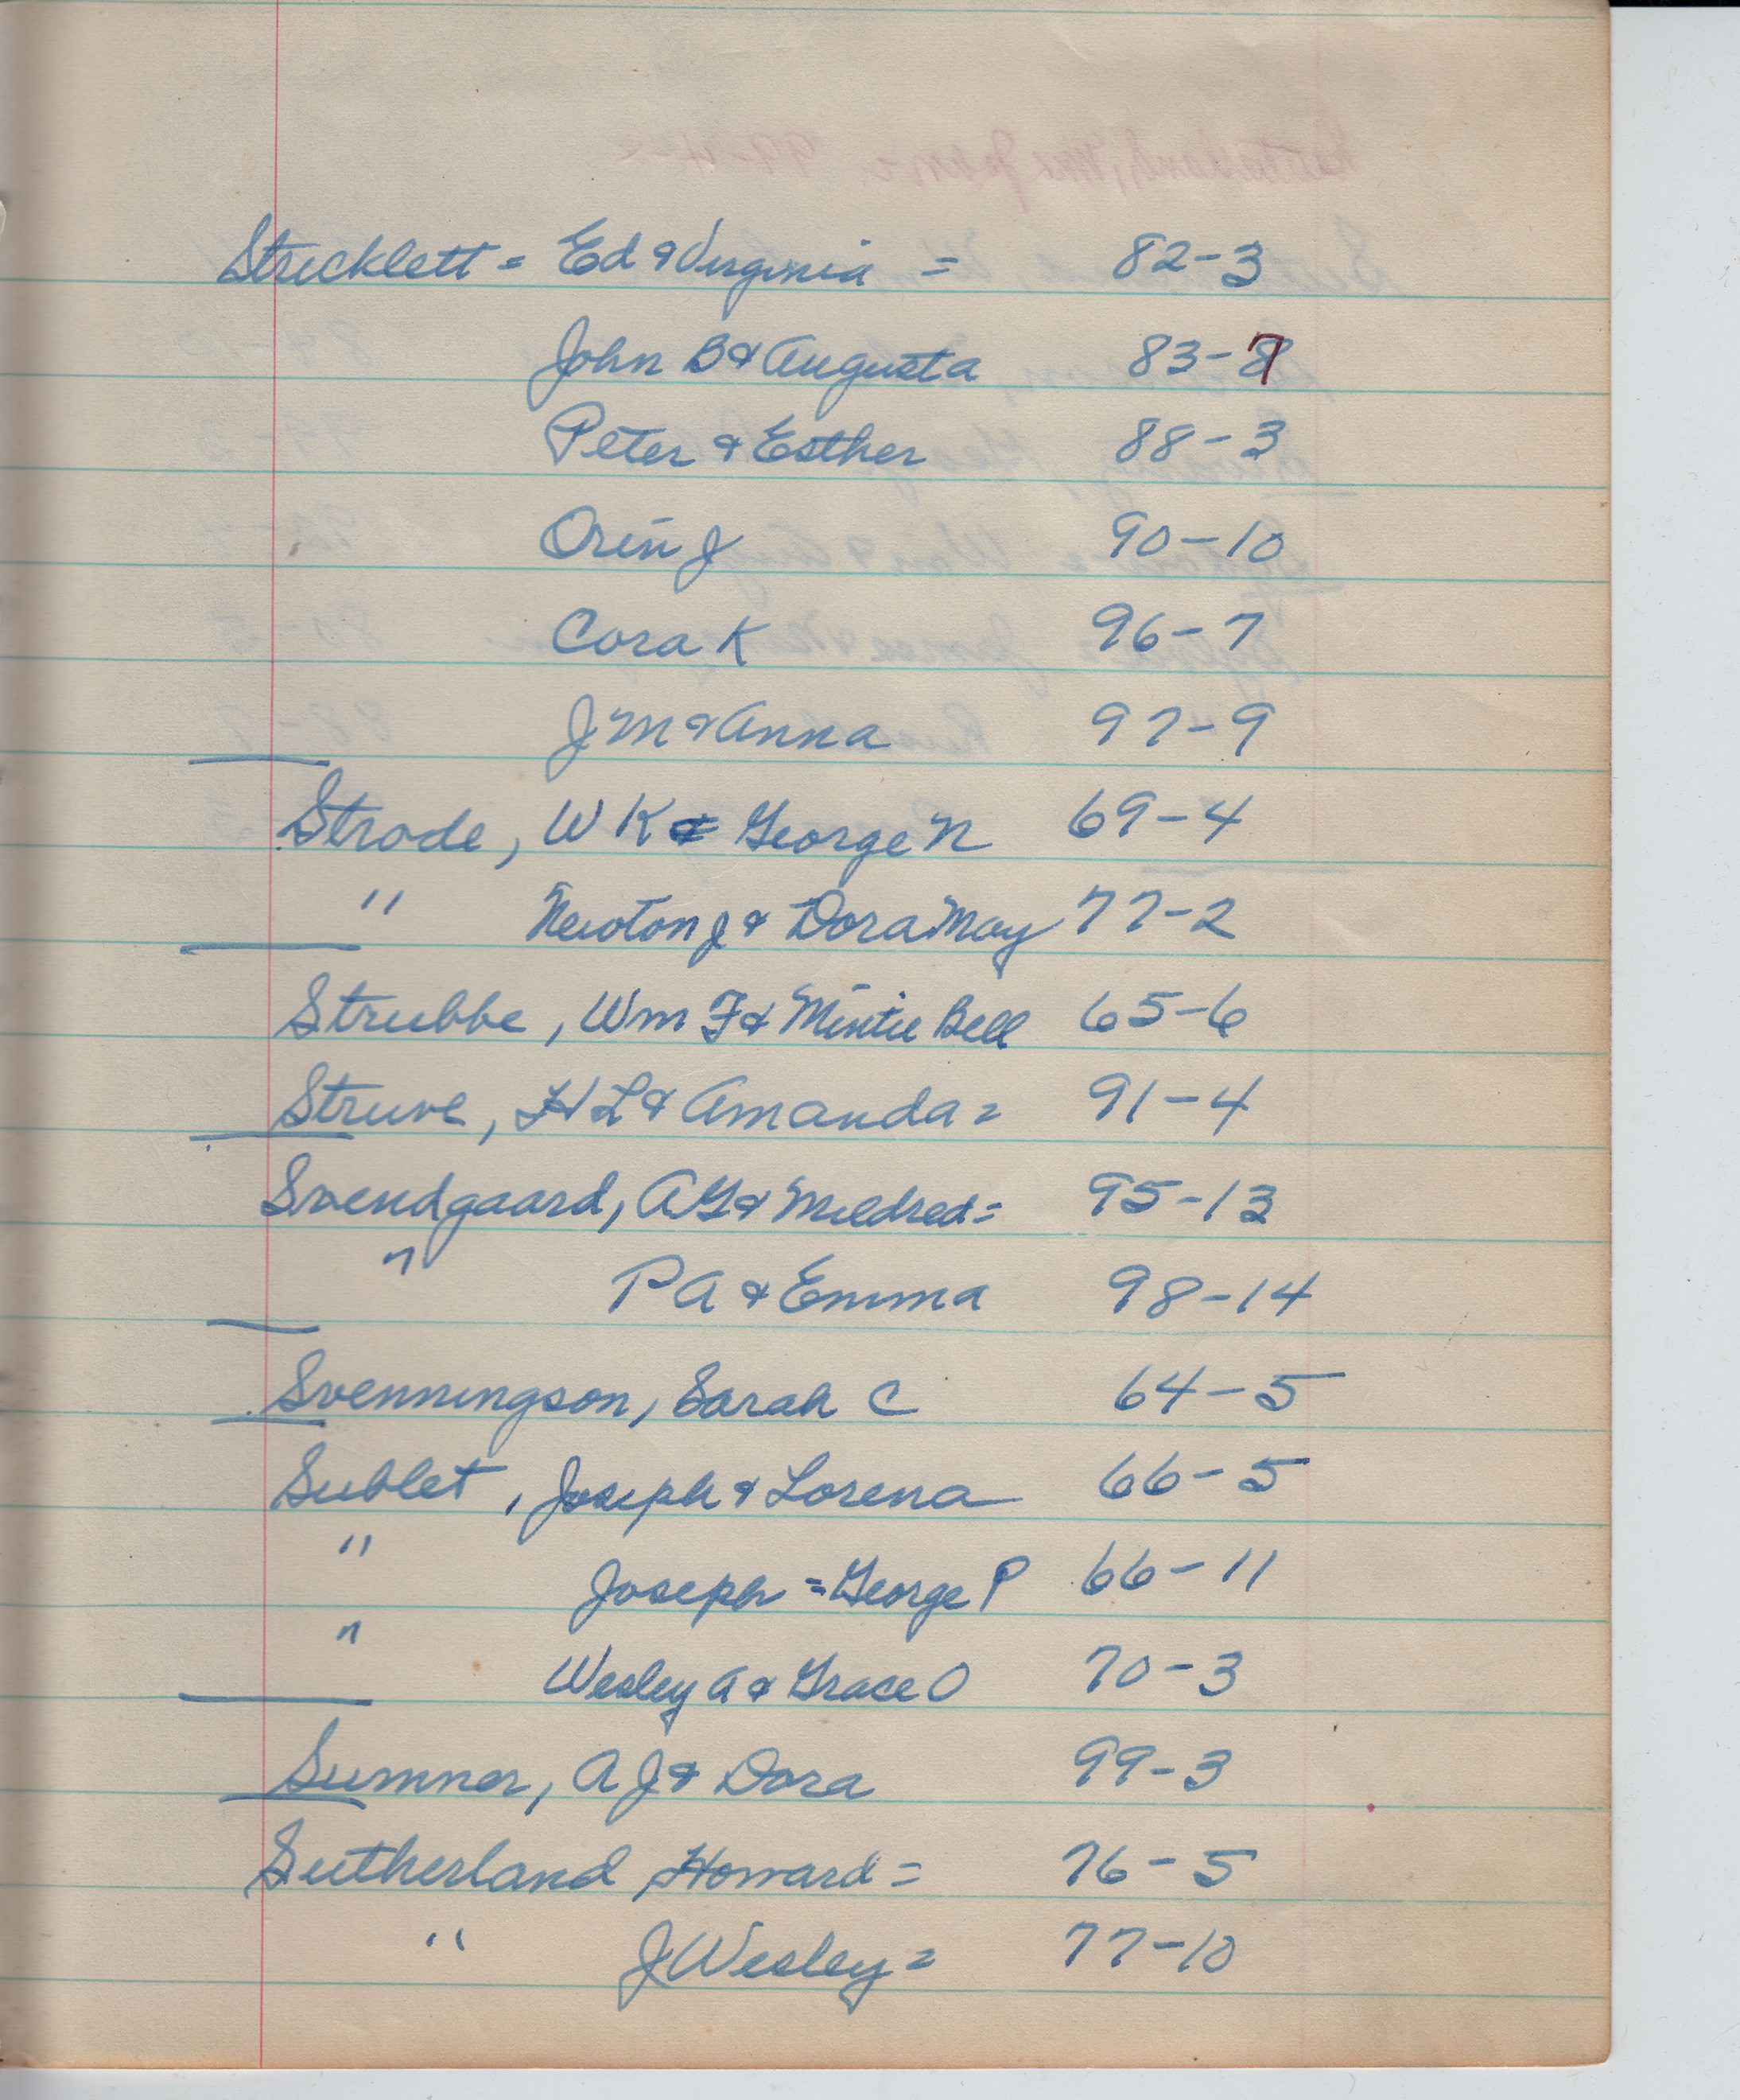 Stricklett = Ed & Virginia = 82-3
John B & Augusta 83-7
Peter & Esther 88-3
Orin J 90-10
Cora K 96-7
J M & Anna 97-9
Strode, W K & George N 69-4
" Newton J & Dora May 77-2
Strubbe, Wm F & Mintie Bell 65-6
Struve, H L & Amanda = 91-4
Svendgaard, A G & Mildred = 95-13
" P A & Emma 98-14
Svenningson, Sarah C 64-5
Sublet, Joseph & Lorena 66-5
" Joseph = George P 66-11
" Wesley A & Grace O 70-3
Sumner, A J & Dora 99-3
Sutherland, Howard = 76-5
" J Wesley = 77-10